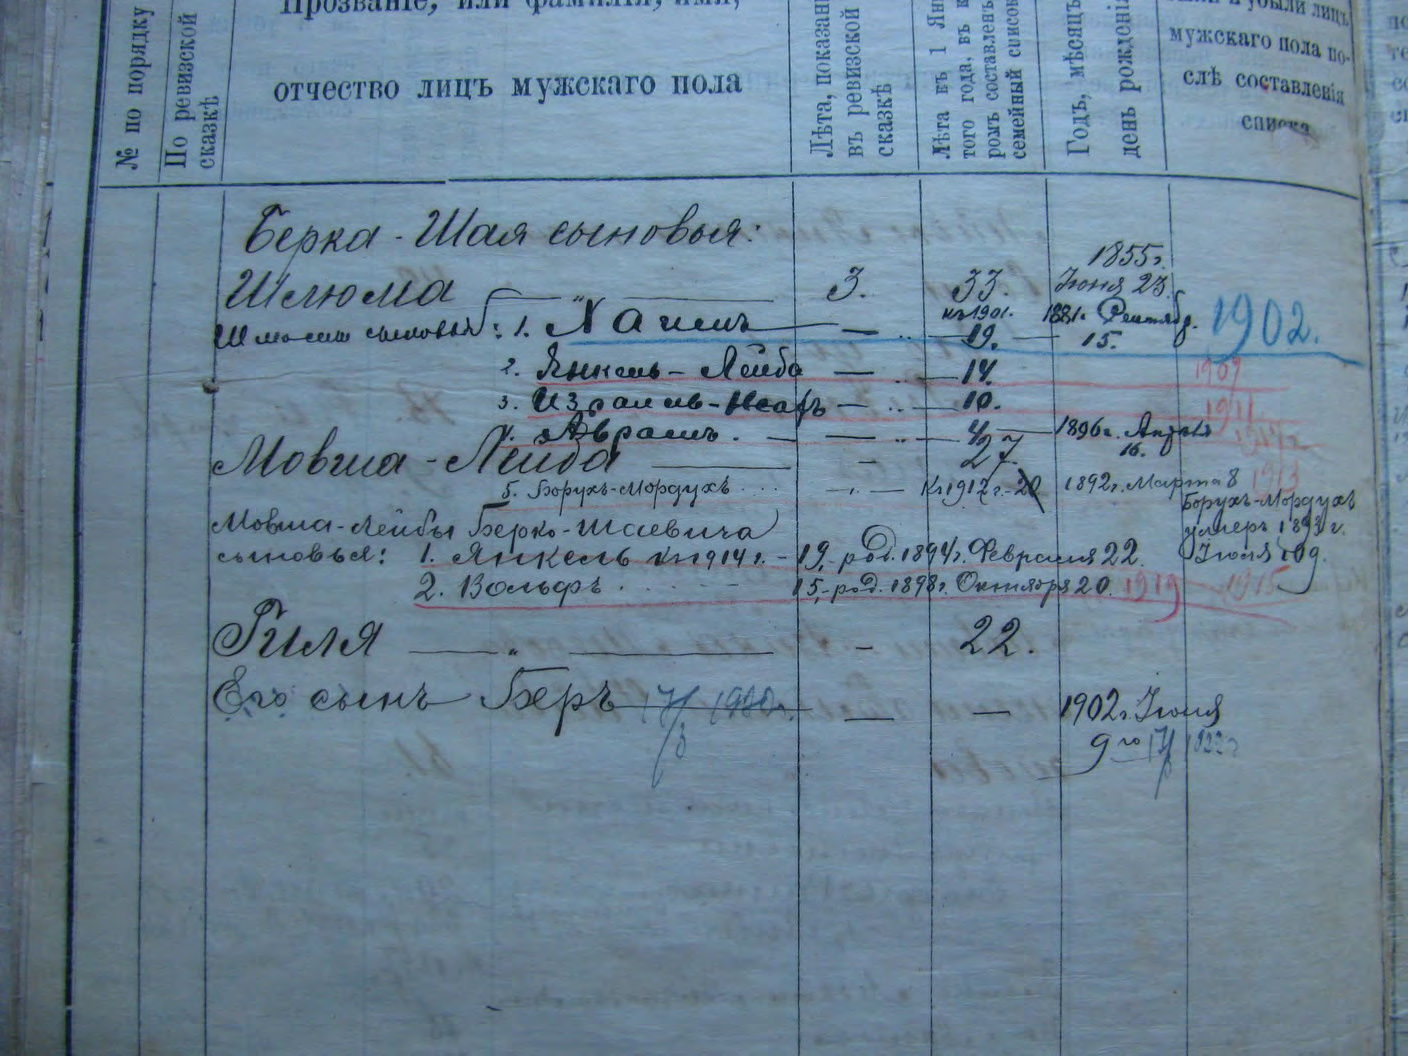 № по порядку
По ревизской сказкѣ
Прозваніе, или фамилія, имя,
отчество лицъ мужскаго пола
Лѣта, показан
въ ревизской
сказкѣ
Лѣта къ 1 Ян
того года, въ к
ромъ составленъ
семейный список
Годъ, мѣсяцъ
день рожденія
и убыли лицъ
мужскаго пола по-
слѣ составленія
списка
Берка - Шая сыновья:
1855 г.
Шлюма " 3. 33. Іюня 23.
къ 1901.
Шлюмы сыновья: 1. Хаимъ — " — 19. — 1881 г. Сентяб. 15. 1902.
2. Янкель - Лейба — " — 14. 1907
3. Израиль - — " — 10. 1911
4. Абрамъ. — — " — 4 — 1896 г. Апрѣля 16.
Мовша - Лейба — - 27.
5. Борухъ-Мордухъ . . . . — " — Къ 1912 г. - 20 1892 г. Марта 8 1913
Борухъ-Мордухъ
умеръ 1893 г.
Іюля 109.
Мовша-Лейбы Берко-Шаевича
сыновья: 1. Янкель къ 1914 г. - 19, род. 1894 г. Февраля 22. 1915
2. Вольфъ . . . . . 15, - род. 1898 г. Октября 20. 1919
Гиля — " — - 22.
Его сынъ Беръ — — 1902 г. Іюля
9 го